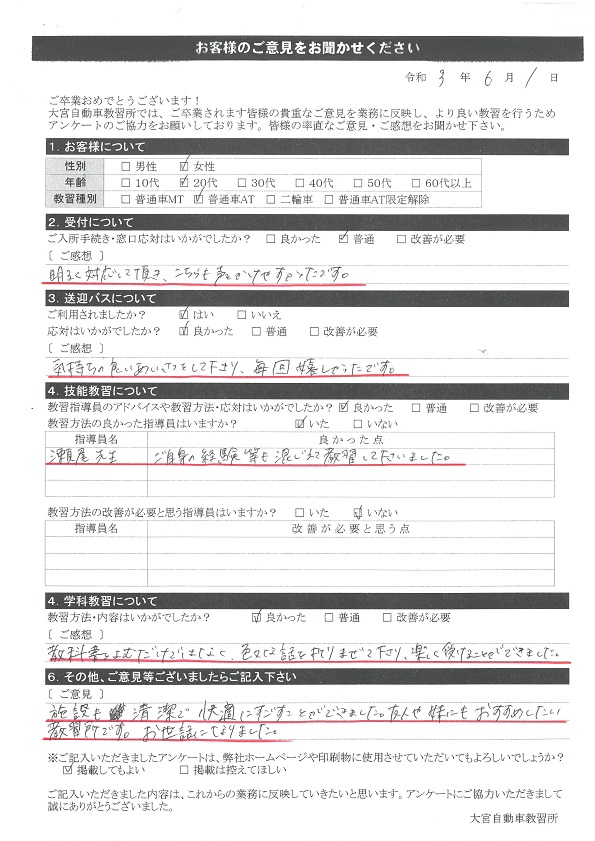 お客様のご意見をお聞かせください
令和 3 年 6 月 1 日
ご卒業おめでとうございます！
大宮自動車教習所では、ご卒業されます皆様の貴重なご意見を業務に反映し、より良い教習を行うため
アンケートのご協力をお願いしております。皆様の率直なご意見・ご感想をお聞かせ下さい。
1. お客様について
性別 □ 男性 ☑ 女性
年齢 □ 10代 ☑ 20代 □ 30代 □ 40代 □ 50代 □ 60代以上
教習種別 □ 普通車MT ☑ 普通車AT □ 二輪車 □ 普通車AT限定解除
2. 受付について
ご入所手続き・窓口応対はいかがでしたか？ □ 良かった ☑ 普通 □ 改善が必要
〔 ご感想 〕
明るく対応して頂き、こちらも声をかけやすかったです。
3. 送迎バスについて
ご利用されましたか？ ☑ はい □ いいえ
応対はいかがでしたか？ ☑ 良かった □ 普通 □ 改善が必要
〔 ご感想 〕
気持ちの良いあいさつをして下さり、毎回嬉しかったです。
4. 技能教習について
教習指導員のアドバイスや教習方法・応対はいかがでしたか？ ☑ 良かった □ 普通 □ 改善が必要
教習方法の良かった指導員はいますか？ ☑ いた □ いない
指導員名 良かった点
瀬尾先生 ご自身の経験等も混じえて教習して下さいました。
教習方法の改善が必要と思う指導員はいますか？ □ いた ☑ いない
指導員名 改善が必要と思う点
4. 学科教習について
教習方法・内容はいかがでしたか？ ☑ 良かった □ 普通 □ 改善が必要
〔 ご感想 〕
教科書をよむだけではなく、色々な話を折りまぜて下さり、楽しく受けることができました。
6. その他、ご意見等ございましたらご記入下さい
〔 ご意見 〕
施設も清潔で快適にすごすことができました。友人や妹にもおすすめしたい
教習所です。お世話になりました。
※ご記入いただきましたアンケートは、弊社ホームページや印刷物に使用させていただいてもよろしいでしょうか？
☑ 掲載してもよい □ 掲載は控えてほしい
ご記入いただきました内容は、これからの業務に反映していきたいと思います。アンケートにご協力いただきまして
誠にありがとうございました。
大宮自動車教習所